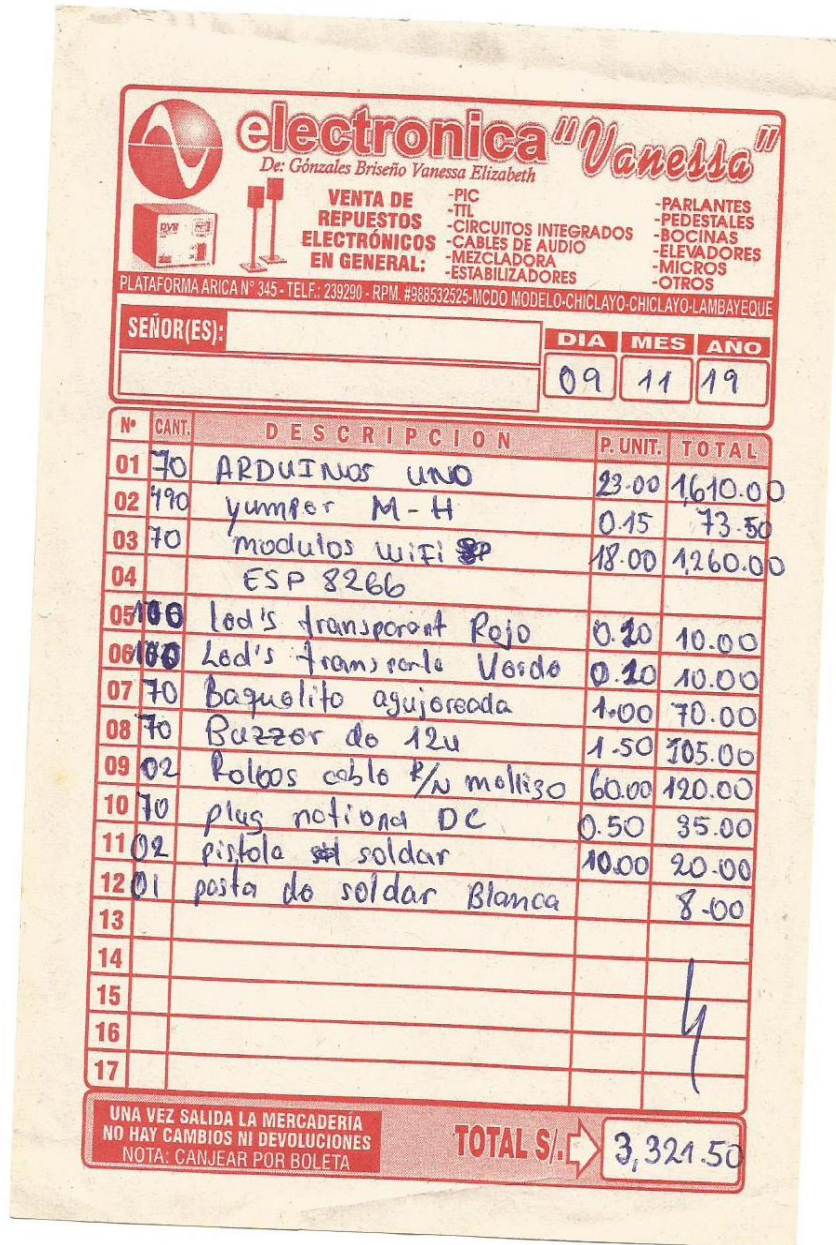 electronica "Vanessa"
De: Gónzales Briseño Vanessa Elizabeth
VENTA DE REPUESTOS ELECTRÓNICOS EN GENERAL:
-PIC
-TTL
-CIRCUITOS INTEGRADOS
-CABLES DE AUDIO
-MEZCLADORA
-ESTABILIZADORES
-PARLANTES
-PEDESTALES
-BOCINAS
-ELEVADORES
-MICROS
-OTROS
PLATAFORMA ARICA N° 345 - TELF.: 239290 - RPM. #988532525-MCDO MODELO-CHICLAYO-CHICLAYO-LAMBAYEQUE
SEÑOR(ES):
DIA MES AÑO
09 11 19
N° CANT. DESCRIPCION P. UNIT. TOTAL
01 70 ARDUINOS UNO 23.00 1,610.00
02 490 yumper M-H 0.15 73.50
03 70 modulos wiFi 18.00 1,260.00
04 ESP 8266
05 100 Led's transparent Rojo 0.10 10.00
06 100 Led's transparte Verde 0.10 10.00
07 70 Baquelito agujereada 1.00 70.00
08 70 Buzzer de 12v 1.50 105.00
09 02 cable R/N mellizo 60.00 120.00
10 70 plug DC 0.50 35.00
11 02 pistola soldar 10.00 20.00
12 01 pasta de soldar Blanca 8.00
13
14
15
16
17
UNA VEZ SALIDA LA MERCADERÍA
NO HAY CAMBIOS NI DEVOLUCIONES
NOTA: CANJEAR POR BOLETA
TOTAL S/. 3,321.50